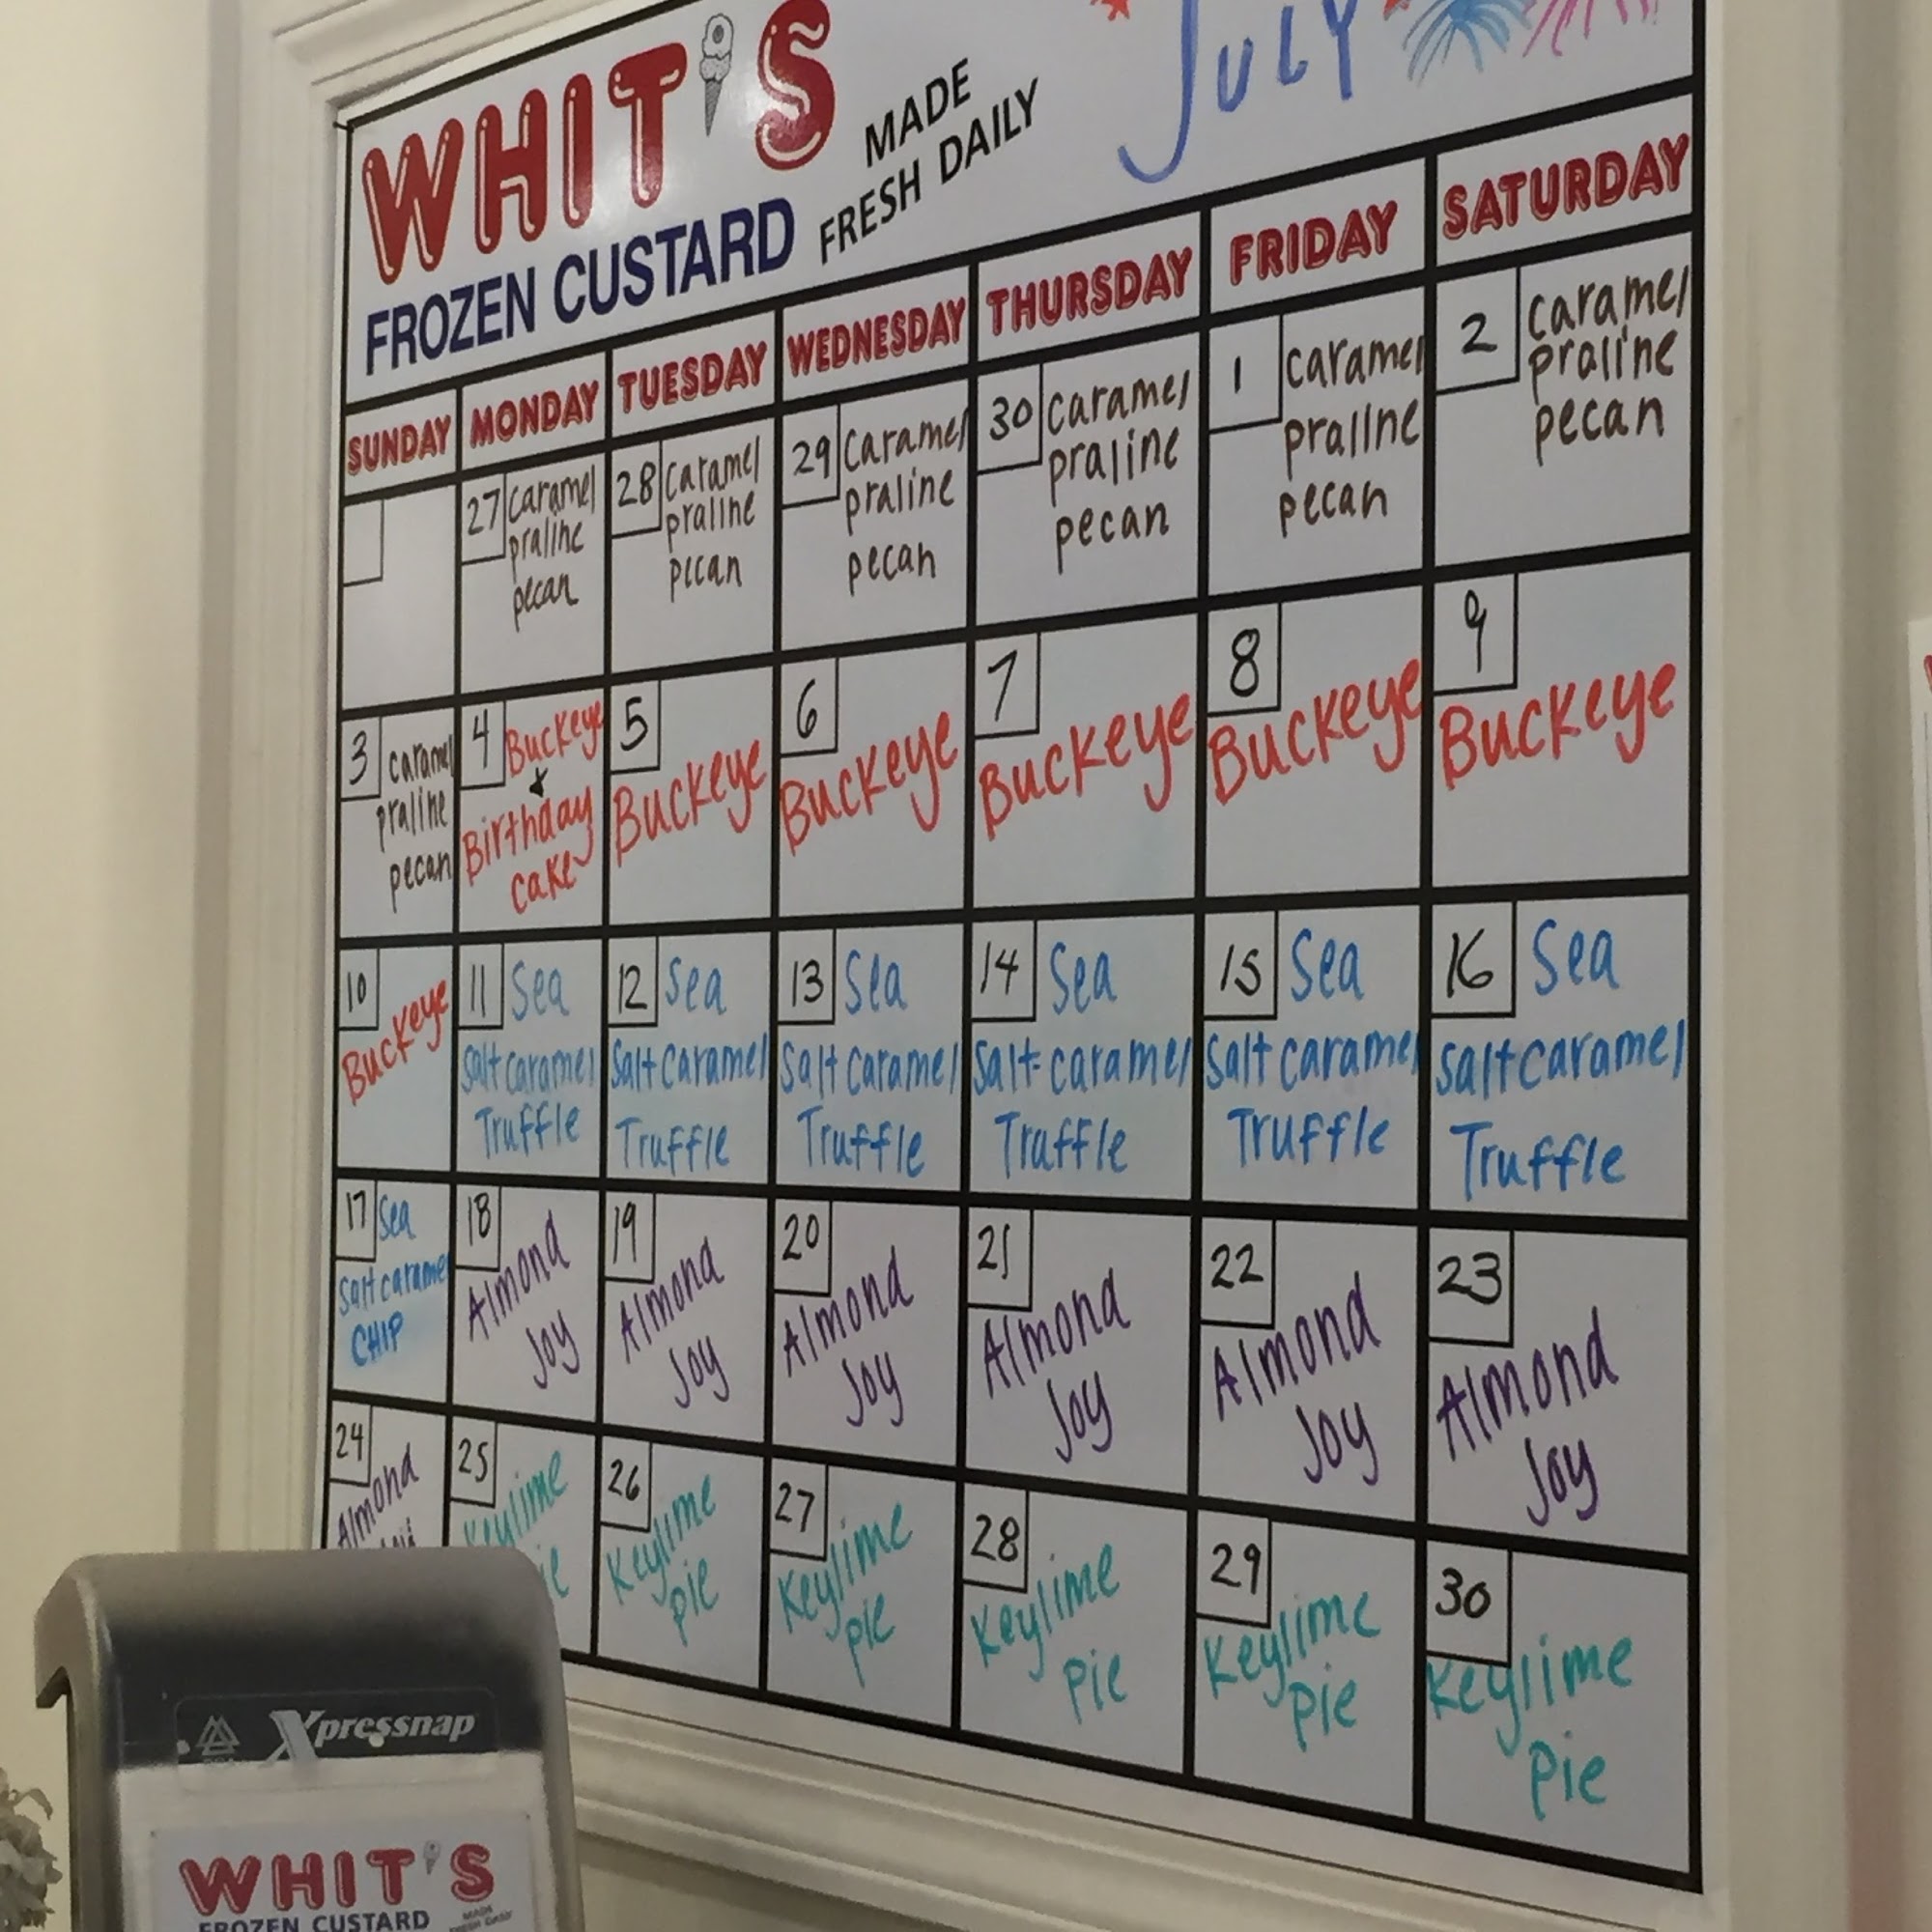 WHIT'S
FROZEN CUSTARD
MADE
FRESH DAILY
JULY
SUNDAY MONDAY TUESDAY WEDNESDAY THURSDAY FRIDAY SATURDAY
27 caramel
praline
pecan
28 caramel
praline
pecan
29 caramel
praline
pecan
30 caramel
praline
pecan
1 caramel
praline
pecan
2 caramel
praline
pecan
3 caramel
praline
pecan
4 Buckeye
&
Birthday
cake
5
Buckeye
6
Buckeye
7
Buckeye
8
Buckeye
9
Buckeye
10
Buckeye
11 Sea
Salt caramel
Truffle
12 Sea
Salt caramel
Truffle
13 Sea
Salt caramel
Truffle
14 Sea
Salt caramel
Truffle
15 Sea
Salt caramel
Truffle
16 Sea
Salt caramel
Truffle
17 Sea
Salt caramel
CHIP
18
Almond
Joy
19
Almond
Joy
20
Almond
Joy
21
Almond
Joy
22
Almond
Joy
23
Almond
Joy
24
Almond
25
Keylime
26
Keylime
pie
27
Keylime
pie
28
Keylime
pie
29
Keylime
pie
30
Keylime
pie
Xpressnap
WHIT'S
FROZEN CUSTARD
MADE
FRESH DAILY